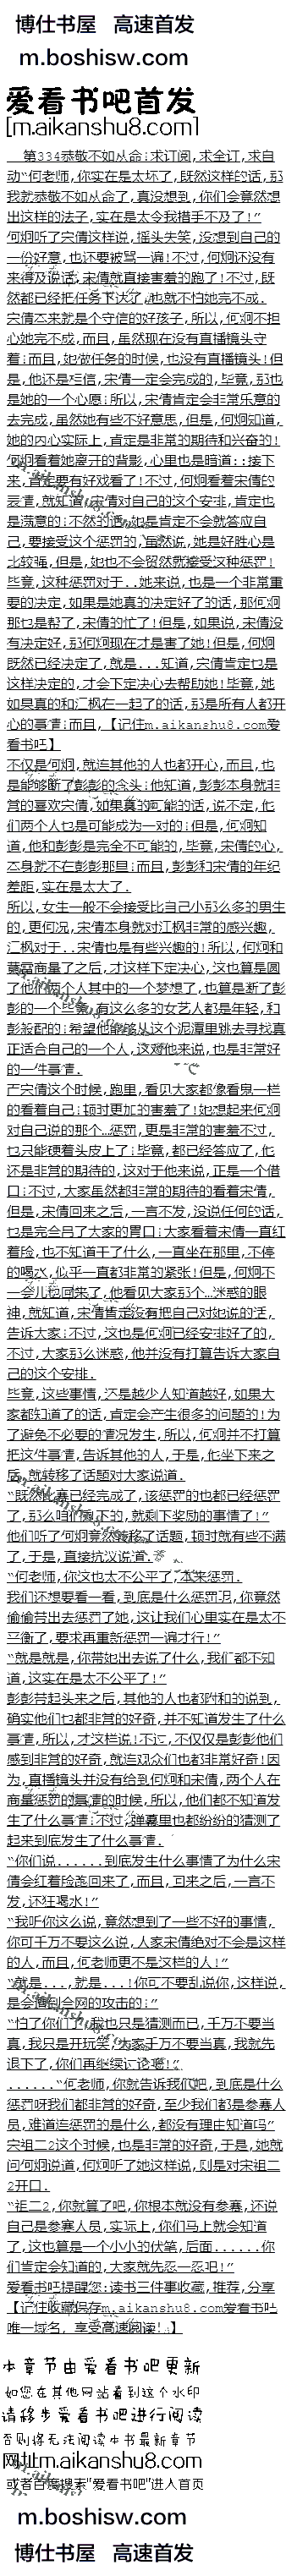 博仕书屋 高速首发
m.boshisw.com
爱看书吧首发
[m.aikanshu8.com]
第334恭敬不如从命:求订阅,求全订,求自
动“何老师,你实在是太坏了,既然这样的话,那
我就恭敬不如从命了,真没想到,你们会竟然想
出这样的法子,实在是太令我措手不及了!”
何炯听了宋倩这样说,摇头失笑,没想到自己的
一份好意,也还要被骂一遍!不过,何炯还没有
来得及说话,宋倩就直接害羞的跑了!不过,既
然都已经把任务下达了,也就不怕她完不成.
宋倩本来就是个守信的好孩子,所以,何炯不担
心她完不成,而且,虽然现在没有直播镜头守
着:而且,她做任务的时候,也没有直播镜头!但
是,他还是相信,宋倩一定会完成的,毕竟,那也
是她的一个心愿:所以,宋倩肯定会非常乐意的
去完成,虽然她有些不好意思,但是,何炯知道,
她的内心实际上,肯定是非常的期待和兴奋的!
何炯看着她离开的背影,心里也是暗道::接下
来,肯定要有好戏看了!不过,何炯看着宋倩的
表情,就知道,宋倩对自己的这个安排,肯定也
是满意的:不然的话,也是肯定不会就答应自
己,要接受这个惩罚的,虽然说,她是好胜心是
比较强,但是,她也不会贸然就接受这种惩罚!
毕竟,这种惩罚对于..她来说,也是一个非常重
要的决定,如果是她真的决定好了的话,那何炯
那也是帮了,宋倩的忙了!但是,如果说,宋倩没
有决定好,那何炯现在才是害了她!但是,何炯
既然已经决定了,就是...知道,宋倩肯定也是
这样决定的,才会下定决心去帮助她!毕竟,她
如果真的和江枫在一起了的话,那是所有人都开
心的事情:而且,【记住m.aikanshu8.com爱
看书吧】
不仅是何炯,就连其他的人也都开心,而且,也
是能够断了彭彭的念头:他知道,彭彭本身就非
常的喜欢宋倩,如果真的可能的话,说不定,他
们两个人也是可能成为一对的!但是,何炯知
道,他和彭彭是完全不可能的,毕竟,宋倩的心,
本身就不在彭彭那里:而且,彭彭和宋倩的年纪
差距,实在是太大了.
所以,女生一般不会接受比自己小那么多的男生
的,更何况,宋倩本身就对江枫非常的感兴趣,
江枫对于..宋倩也是有些兴趣的!所以,何炯和
黄垒商量了之后,才这样下定决心,这也算是圆
了他们两个人其中的一个梦想了,也算是断了彭
彭的一个终身,有这么多的女艺人都是年轻,和
彭般配的:希望他能够从这个泥潭里跳去寻找真
正适合自己的一个人,这对他来说,也是非常好
的一件事情.
在宋倩这个时候,跑里,看见大家都像看鬼一样
的看着自己:顿时更加的害羞了!她想起来何炯
对自己说的那个...惩罚,更是非常的害羞不过,
也只能硬着头皮上了:毕竟,都已经答应了,他
还是非常的期待的,这对于他来说,正是一个借
口:不过,大家虽然都非常的期待的看着宋倩,
但是,宋倩回来之后,一言不发,没说任何的话,
也是完全吊了大家的胃口:大家看着宋倩一直红
着脸,也不知道干了什么,一直坐在那里,不停
的喝水,似乎一直都非常的紧张!但是,何炯不
一会儿也回来了,他看见大家那个...迷惑的眼
神,就知道,宋倩肯定没有把自己对她说的话,
告诉大家:不过,这也是何炯已经安排好了的,
不过,大家那么迷惑,他并没有打算告诉大家自
己的这个安排.
毕竟,这些事情,还是越少人知道越好,如果大
家都知道了的话,肯定会产生很多的问题的!为
了避免不必要的情况发生,所以,何炯并不打算
把这件事情,告诉其他的人,于是,他坐下来之
后,就转移了话题对大家说道.
“既然比赛已经完成了,该惩罚的也都已经惩罚
了,那么咱们余下的,就剩下奖励的事情了!”
他们听了何炯竟然转移了话题,顿时就有些不满
了,于是,直接抗议说道.
“何老师,你这也太不公平了,本来惩罚.
我们还想要看一看,到底是什么惩罚呢,你竟然
偷偷带出去惩罚了她,这让我们心里实在是太不
平衡了,要求再重新惩罚一遍才行!”
“就是就是,你带她出去说了什么,我们都不知
道,这实在是太不公平了!”
彭彭带起头来之后,其他的人也都附和的说到,
确实他们也都非常的好奇,并不知道发生了什么
事情,所以,才这样说!不过,不仅仅是彭彭他们
感到非常的好奇,就连观众们也都非常好奇!因
为,直播镜头并没有给到何炯和宋倩,两个人在
商量惩罚的事情的时候,所以,他们都不知道发
生了什么事情:不过,弹幕里也都纷纷的猜测了
起来到底发生了什么事情.
“你们说......到底发生什么事情了为什么宋
倩会红着脸跑回来了,而且,回来之后,一言不
发,还狂喝水!”
“我听你这么说,竟然想到了一些不好的事情,
你可千万不要这么说,人家宋倩绝对不会是这样
的人,而且,何老师更不是这样的人!”
“就是...,就是...!你可不要乱说你,这样说,
是会遭到全网的攻击的:”
“怕了你们了,我也只是猜测而已,千万不要当
真,我只是开玩笑,大家千万不要当真,我就先
退下了,你们再继续讨论吧!”
......“何老师,你就告诉我们吧,到底是什么
惩罚呀我们都非常的好奇,至少我们都是参赛人
员,难道连惩罚的是什么,都没有理由知道吗”
宋祖二2这个时候,也是非常的好奇,于是,她就
问何炯说道,何炯听了她这样说,则是对宋祖二
2开口.
“祖二2,你就算了吧,你根本就没有参赛,还说
自己是参赛人员,实际上,你们马上就会知道
了,这也算是一个小小的伏笔,后面......你
们肯定会知道的,大家就先忍一忍吧!”
爱看书吧提醒您:读书三件事收藏,推荐,分享
【记住收藏保存m.aikanshu8.com爱看书吧
唯一域名，享受高速阅读!.】
本章节由爱看书吧更新
如您在其他网站看到这个水印
请移步爱看书吧进行阅读
否则将无法阅读本书最新章节
网址m.aikanshu8.com
或者百度搜索"爱看书吧"进入首页
m.boshisw.com
博仕书屋 高速首发